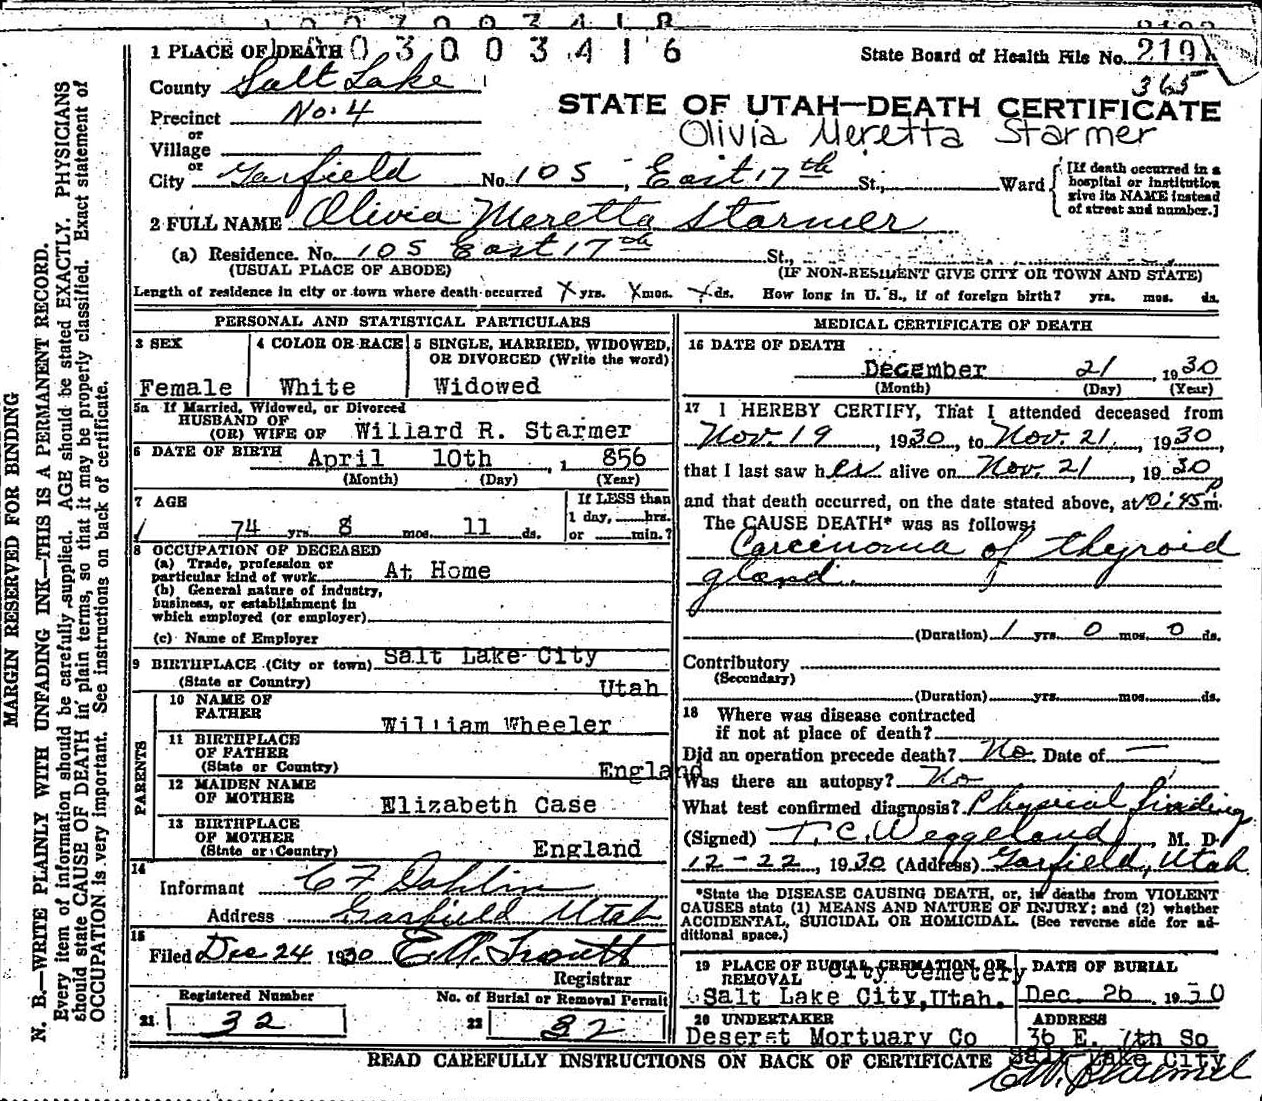 1 PLACE OF DEATH 0 3 0 0 3 4 1 6
State Board of Health File No. 219
365
County Salt Lake
STATE OF UTAH—DEATH CERTIFICATE
Precinct No. 4
Olivia Meretta Starmer
or
Village
or
City Garfield No. 105, East 17th St., Ward
[If death occurred in a hospital or institution give its NAME instead of street and number.]
2 FULL NAME Olivia Meretta Starmer
(a) Residence. No. 105 East 17th St.,
(USUAL PLACE OF ABODE) (IF NON-RESIDENT GIVE CITY OR TOWN AND STATE)
Length of residence in city or town where death occurred X yrs. X mos. X ds. How long in U. S., if of foreign birth? yrs. mos. ds.
PERSONAL AND STATISTICAL PARTICULARS
3 SEX
Female
4 COLOR OR RACE
White
5 SINGLE, MARRIED, WIDOWED, OR DIVORCED (Write the word)
Widowed
5a If Married, Widowed, or Divorced
HUSBAND OF
(OR) WIFE OF Willard R. Starmer
6 DATE OF BIRTH April 10th, 1 856
(Month) (Day) (Year)
7 AGE
74 yrs. 8 mos. 11 ds.
If LESS than
1 day, hrs.
or min.?
8 OCCUPATION OF DECEASED
(a) Trade, profession or
particular kind of work At Home
(b) General nature of industry,
business, or establishment in
which employed (or employer)
(c) Name of Employer
9 BIRTHPLACE (City or town) Salt Lake City
(State or Country) Utah
PARENTS
10 NAME OF
FATHER William Wheeler
11 BIRTHPLACE
OF FATHER
(State or Country) England
12 MAIDEN NAME
OF MOTHER Elizabeth Case
13 BIRTHPLACE
OF MOTHER
(State or Country) England
14
Informant C F Dahlin
Address Garfield Utah
15
Filed Dec 24 1930
Registrar
Registered Number
21 32
No. of Burial or Removal Permit
22 32
MEDICAL CERTIFICATE OF DEATH
16 DATE OF DEATH
December 21, 1930
(Month) (Day) (Year)
17 I HEREBY CERTIFY, That I attended deceased from
Nov. 19, 1930, to Nov. 21, 1930
that I last saw her alive on Nov. 21, 1930
and that death occurred, on the date stated above, at 10:45 P m.
The CAUSE DEATH* was as follows:
Carcinoma of thyroid
gland.
(Duration) 1 yrs. 0 mos. 0 ds.
Contributory
(Secondary)
(Duration) yrs. mos. ds.
18 Where was disease contracted
if not at place of death?
Did an operation precede death? No. Date of —
Was there an autopsy? No
What test confirmed diagnosis? Physical finding
(Signed) T. C. Weggeland, M. D.
12-22, 1930 (Address) Garfield, Utah
*State the DISEASE CAUSING DEATH, or, in deaths from VIOLENT
CAUSES state (1) MEANS AND NATURE OF INJURY; and (2) whether
ACCIDENTAL, SUICIDAL OR HOMICIDAL. (See reverse side for ad-
ditional space.)
19 PLACE OF BURIAL, CREMATION, OR
REMOVAL City Cemetery
Salt Lake City, Utah.
DATE OF BURIAL
Dec. 26 1930
20 UNDERTAKER
Deseret Mortuary Co
ADDRESS
36 E. 7th So
Salt Lake City
READ CAREFULLY INSTRUCTIONS ON BACK OF CERTIFICATE
MARGIN RESERVED FOR BINDING
N. B.—WRITE PLAINLY WITH UNFADING INK—THIS IS A PERMANENT RECORD.
Every item of information should be carefully supplied. AGE should be stated EXACTLY. PHYSICIANS
should state CAUSE OF DEATH in plain terms, so that it may be properly classified. Exact statement of
OCCUPATION is very important. See instructions on back of certificate.